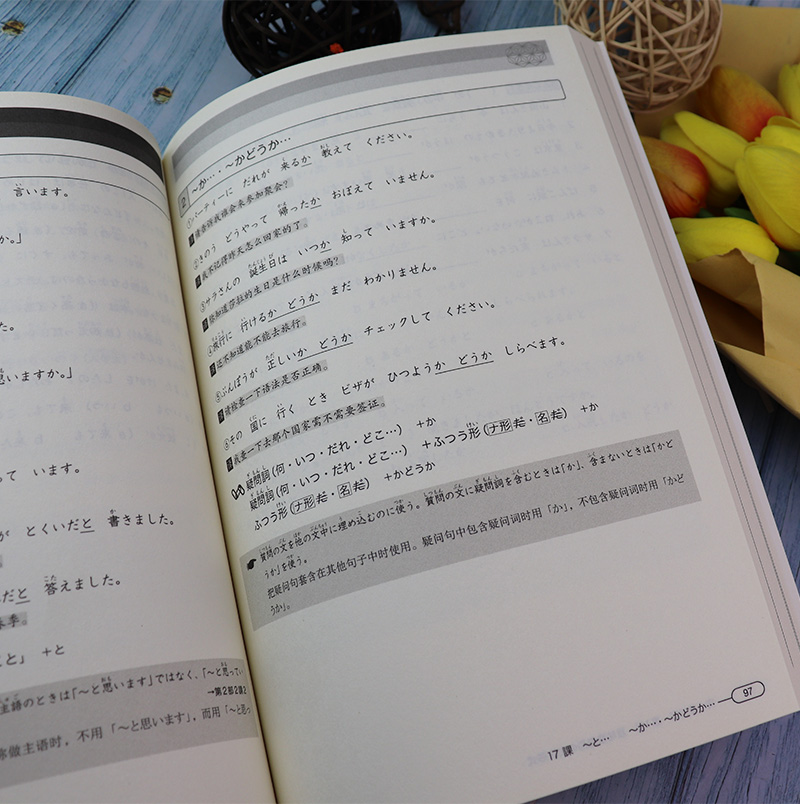 言います。
か。」
た。
思いますか。」
って います。
が とくいだと 書きました。
だと 答えました。
季。
こと」 +と
主語のときは「~と思います」ではなく、「~と思ってい
→第2部2課2
你做主语时，不用「~と思います」，而用「~と思っ
2 ~か…・~かどうか…
①パーティーに だれが 来るか 教えて ください。
请告诉我谁会来参加聚会?
②きのう どうやって 帰ったか おぼえて いません。
我不记得昨天怎么回家的了。
③サラさんの 誕生日は いつか 知って いますか。
你知道莎拉的生日是什么时候吗?
④旅行に 行けるか どうか まだ わかりません。
还不知道能不能去旅行。
⑤ぶんぽうが 正しいか どうか チェックして ください。
请检查一下语法是否正确。
⑥その 国に 行く とき ビザが ひつようか どうか しらべます。
我查一下去那个国家需不需要签证。
疑問詞(何・いつ・だれ・どこ…) +か
疑問詞(何・いつ・だれ・どこ…) +ふつう形(ナ形だ・名だ) +か
ふつう形(ナ形だ・名だ) +かどうか
質問の文を他の文中に埋め込むのに使う。質問の文に疑問詞を含むときは「か」、含まないときは「かど
うか」を使う。
把疑问句套含在其他句子中时使用。疑问句中包含疑问词时用「か」，不包含疑问词时用「かど
うか」。
17 課 ~と… ~か…・~かどうか… 97